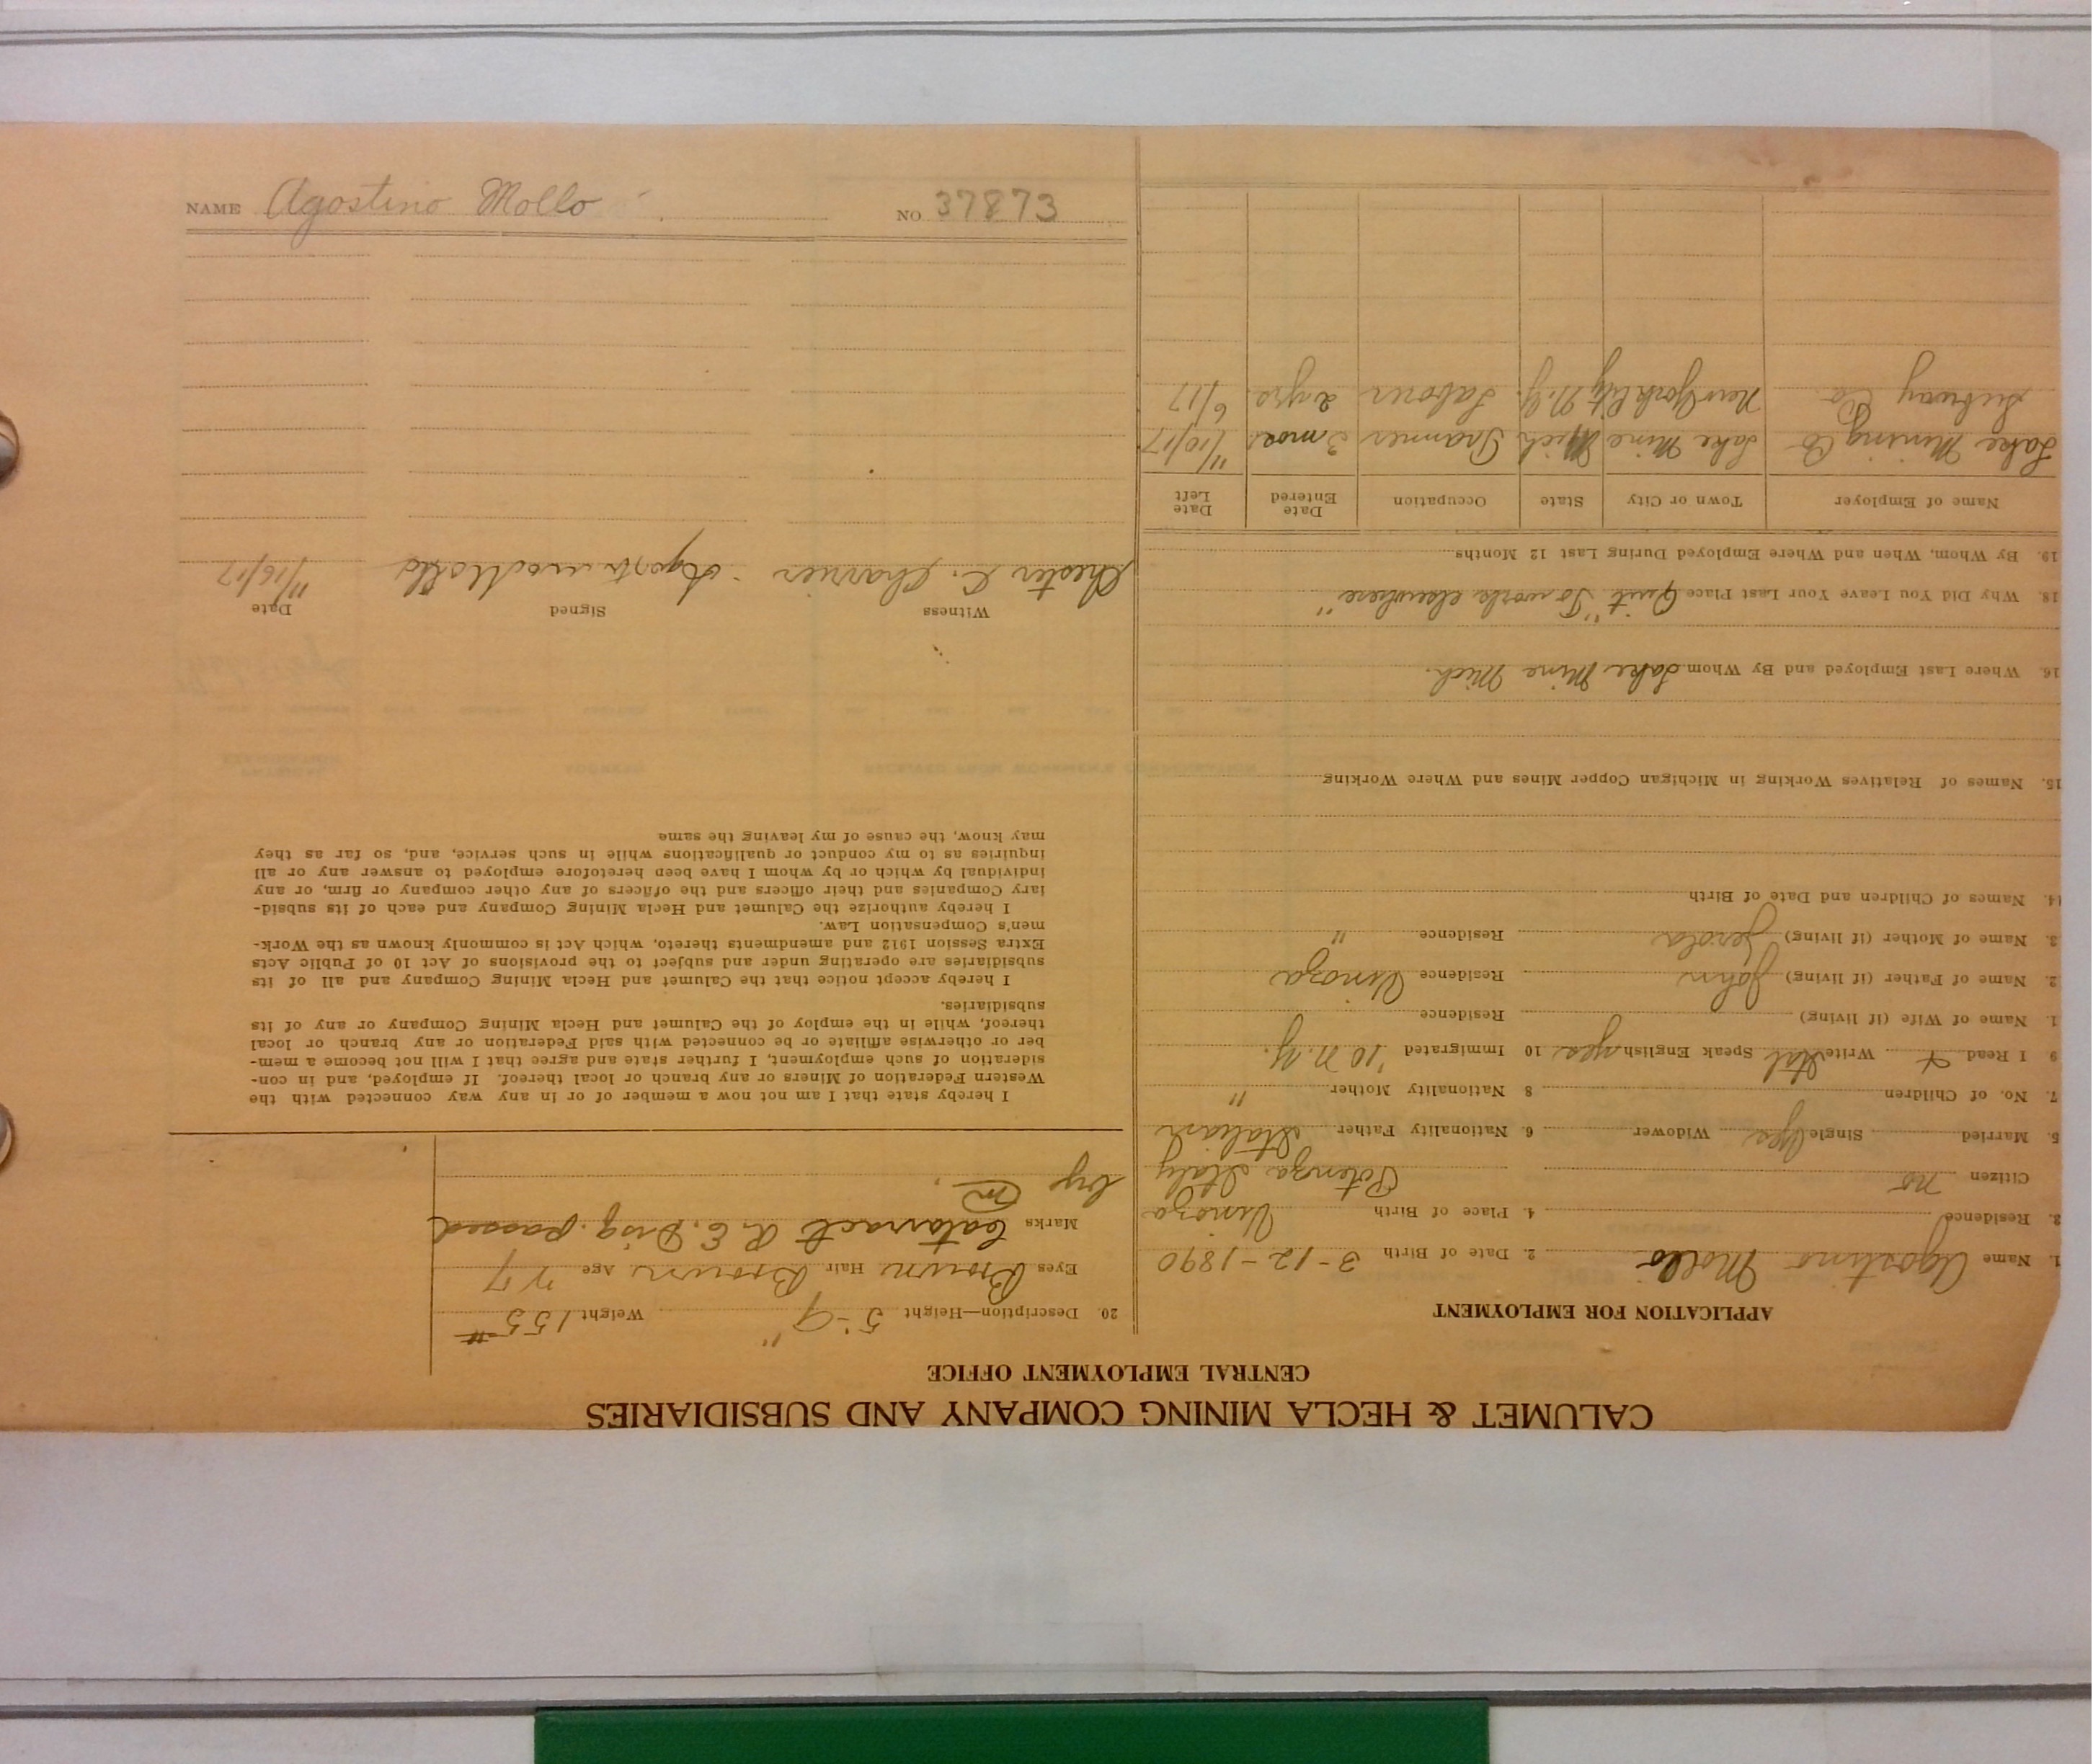 CALUMET & HECLA MINING COMPANY AND SUBSIDIARIES
CENTRAL EMPLOYMENT OFFICE
APPLICATION FOR EMPLOYMENT
1. Name Agostino Mollo 2. Date of Birth 3-12-1890
3. Residence 4. Place of Birth Venoza
Citizen no Potenza Italy
5. Married Single Yes Widower 6. Nationality Father Italian
7. No. of Children 8 Nationality Mother "
9 I Read x Write Ital Speak English yes 10 Immigrated '10 N.Y.
1. Name of Wife (if living) Residence
2. Name of Father (if living) John Residence Venoza
3. Name of Mother (if living) Zerola Residence "
14. Names of Children and Date of Birth
15. Names of Relatives Working in Michigan Copper Mines and Where Working
16. Where Last Employed and By Whom Lake Mine Mich.
18. Why Did You Leave Your Last Place Quit "To work elsewhere"
19. By Whom, When and Where Employed During Last 12 Months
Name of Employer Town or City State Occupation Date Entered Date Left
Lake Mining Co Lake Mine Mich Trammer 3 mos 11/10/17
Subway Co New York City N.Y. Laborer 2 yrs 6/17
20. Description—Height 5'-9" Weight 155 #
Eyes Brown Hair Brown Age 27
Marks Catarract R. E. Disq. passed
by M
I hereby state that I am not now a member of or in any way connected with the
Western Federation of Miners or any branch or local thereof. If employed, and in con-
sideration of such employment, I further state and agree that I will not become a mem-
ber or otherwise affiliate or be connected with said Federation or any branch or local
thereof, while in the employ of the Calumet and Hecla Mining Company or any of its
subsidiaries.
I hereby accept notice that the Calumet and Hecla Mining Company and all of its
subsidiaries are operating under and subject to the provisions of Act 10 of Public Acts
Extra Session 1912 and amendments thereto, which Act is commonly known as the Work-
men's Compensation Law.
I hereby authorize the Calumet and Hecla Mining Company and each of its subsid-
iary Companies and their officers and the officers of any other company or firm, or any
individual by which or by whom I have been heretofore employed to answer any or all
inquiries as to my conduct or qualifications while in such service, and, so far as they
may know, the cause of my leaving the same
Witness Signed Date
Chester C. Charrier Agostino Mollo 11/16/17
NAME Agostino Mollo NO 37873